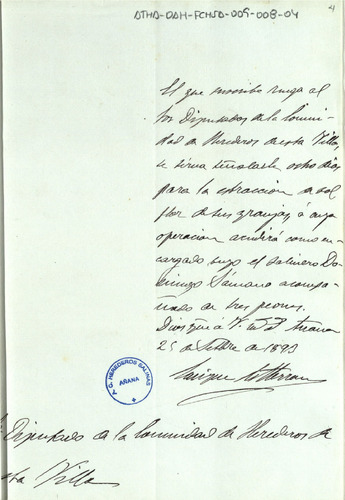 ATHA-DAH-FCHSD-005-008-04
4
El que suscribe ruega al
Sor Diputados de la Comuni
dad de Herederos de esta Villa,
se sirva señalarle ocho dias
para la estraccion de sal
flor de sus granjas, á cuya
operacion acudirá como en
cargado suyo el salinero Do
mingo Sámano acompa
ñado de tres peones.
Dios gue á V. m. a.
25 de de 1893
Enrique
T. G. HEREDEROS SALINAS
AÑANA
Diputado de la Comunidad de Herederos de
esta Villa